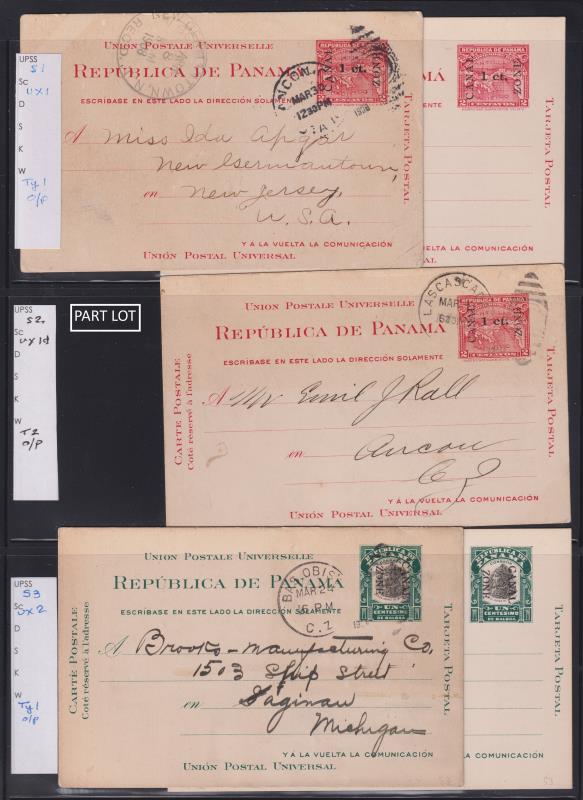 UPSS
S1
Sc
UX1
D
S
K
W
Ty 1
O/P
UNION POSTALE UNIVERSELLE
REPÚBLICA DE PANAMÁ
ESCRÍBASE EN ESTE LADO LA DIRECCIÓN SOLAMENTE
CANAL
1 ct.
ZONE
ANCON
MAR 30
12 30 PM
1908
A Miss Ida Apgar
New Germantown,
en New Jersey,
U.S.A.
Y Á LA VUELTA LA COMUNICACIÓN
UNIÓN POSTAL UNIVERSAL
TARJETA POSTAL
CANAL
1 ct.
ZONE
2 CENTAVOS 2
REPUBLICA DE PANAMA
TARJETA POSTAL
PART LOT
UPSS
S2.
Sc
UX1d
D
S
K
W
T2
O/P
UNION POSTALE UNIVERSELLE
REPÚBLICA DE PANAMÁ
ESCRÍBASE EN ESTE LADO LA DIRECCIÓN SOLAMENTE
CARTE POSTALE
Coté réservé à l'adresse
LAS CASCADAS
MAR
CANAL
1 ct.
ZONE
2 CENTAVOS 2
A Mr Emil J Rall
en Ancon
C Z
Y Á LA VUELTA LA COMUNICACIÓN
UNIÓN POSTAL UNIVERSAL
TARJETA POSTAL
UPSS
S3
Sc
UX2
D
S
K
W
Ty 1
O/P
UNION POSTALE UNIVERSELLE
REPÚBLICA DE PANAMÁ
ESCRÍBASE EN ESTE LADO LA DIRECCIÓN SOLAMENTE
CARTE POSTALE
Coté réservé à l'adresse
BAS OBISPO
MAR 24
6 PM
C.Z.
REPUBLICA DE PANAMA
CANAL
ZONE
UN
CENTESIMO
DE BALBOA
A Brooks-Manufacturing Co.
1503 Ship Street
en Saginaw
Michigan
Y Á LA VUELTA LA COMUNICACIÓN
UNIÓN POSTAL UNIVERSAL
TARJETA POSTAL
REPUBLICA DE PANAMA
CANAL
ZONE
UN
CENTESIMO
DE BALBOA
TARJETA POSTAL
S3